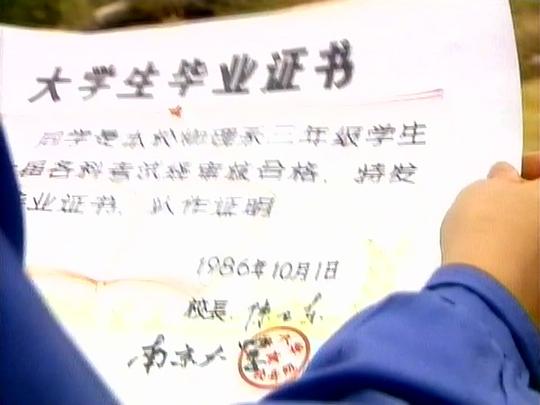 大学生毕业证书
同学是本校物理系三年级学生
届各科考试经审核合格．特发
毕业证书．以作证明
1986年10月1日
校長．
南京大学